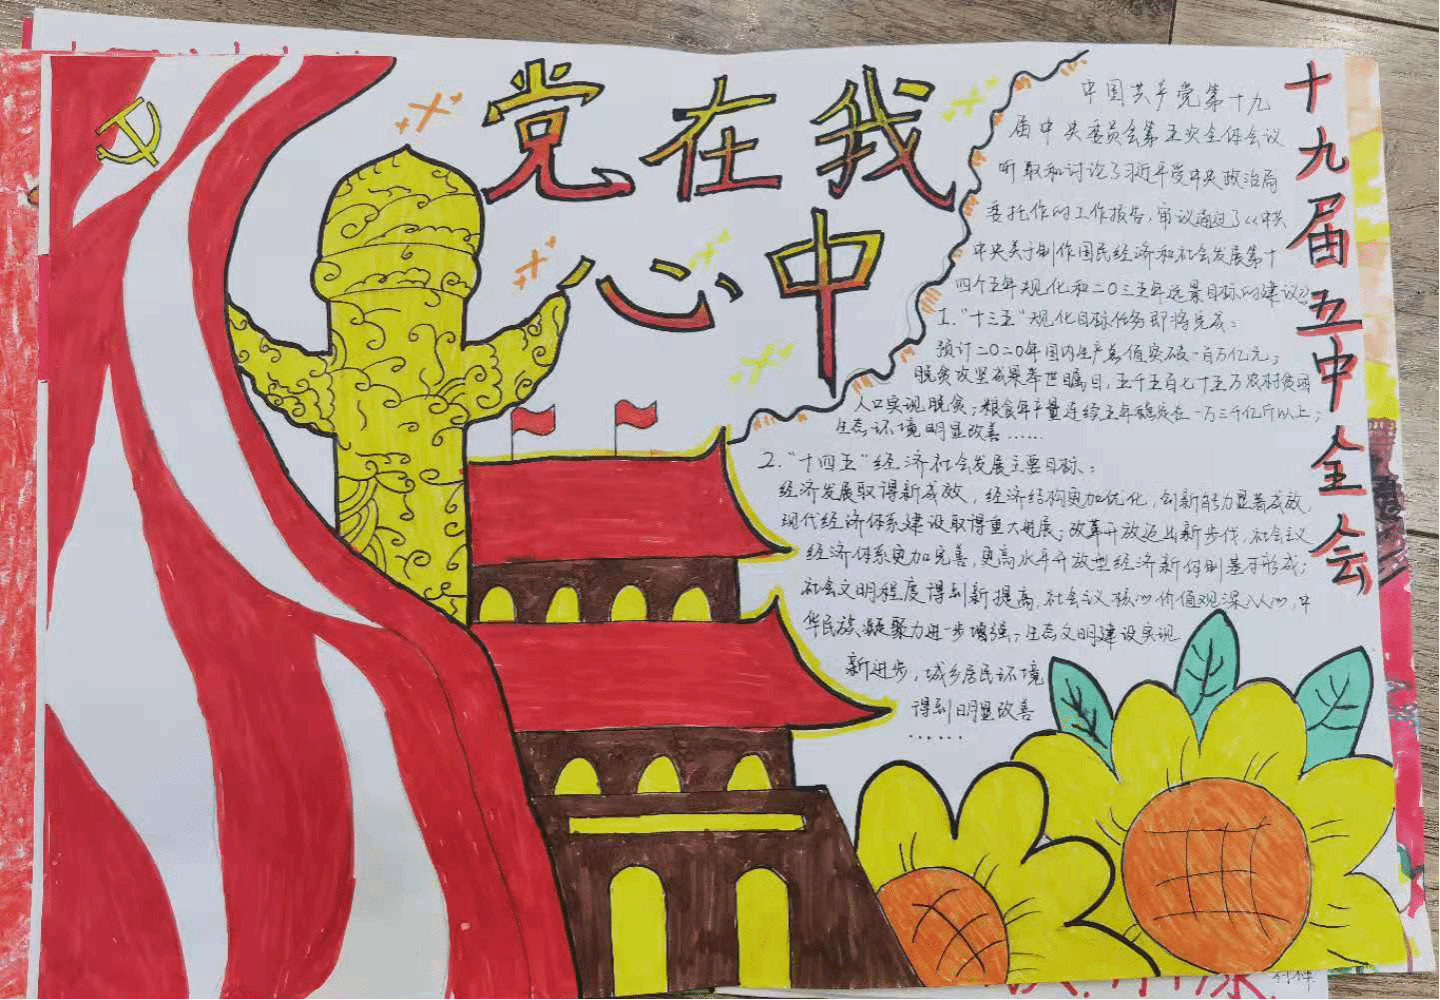 党在我
心中
十九届五中全会
中国共产党第十九
届中央委员会第五次全体会议
听取和讨论了习近平受中央政治局
委托作的工作报告，审议通过了《中共
中央关于制作国民经济和社会发展第十
四个五年规化和二〇三五年远景目标的建议》
1.“十三五”规化目标任务即将完成：
预计二〇二〇年国内生产总值突破一百万亿元；
脱贫攻坚成果举世瞩目，五千五百七十五万农村贫困
人口实现脱贫；粮食年产量连续五年稳定在一万三千亿斤以上；
生态环境明显改善……
2.“十四五”经济社会发展主要目标：
经济发展取得新成效，经济结构更加优化，创新能力显著成效，
现代经济体系建设取得重大进展；改革开放迈出新步伐，社会主义
经济体系更加完善，更高水平开放型经济新体制基本形成；
社会文明程度得到新提高，社会主义核心价值观深入人心，中
华民族凝聚力进一步增强；生态文明建设实现
新进步，城乡居民环境
得到明显改善
……